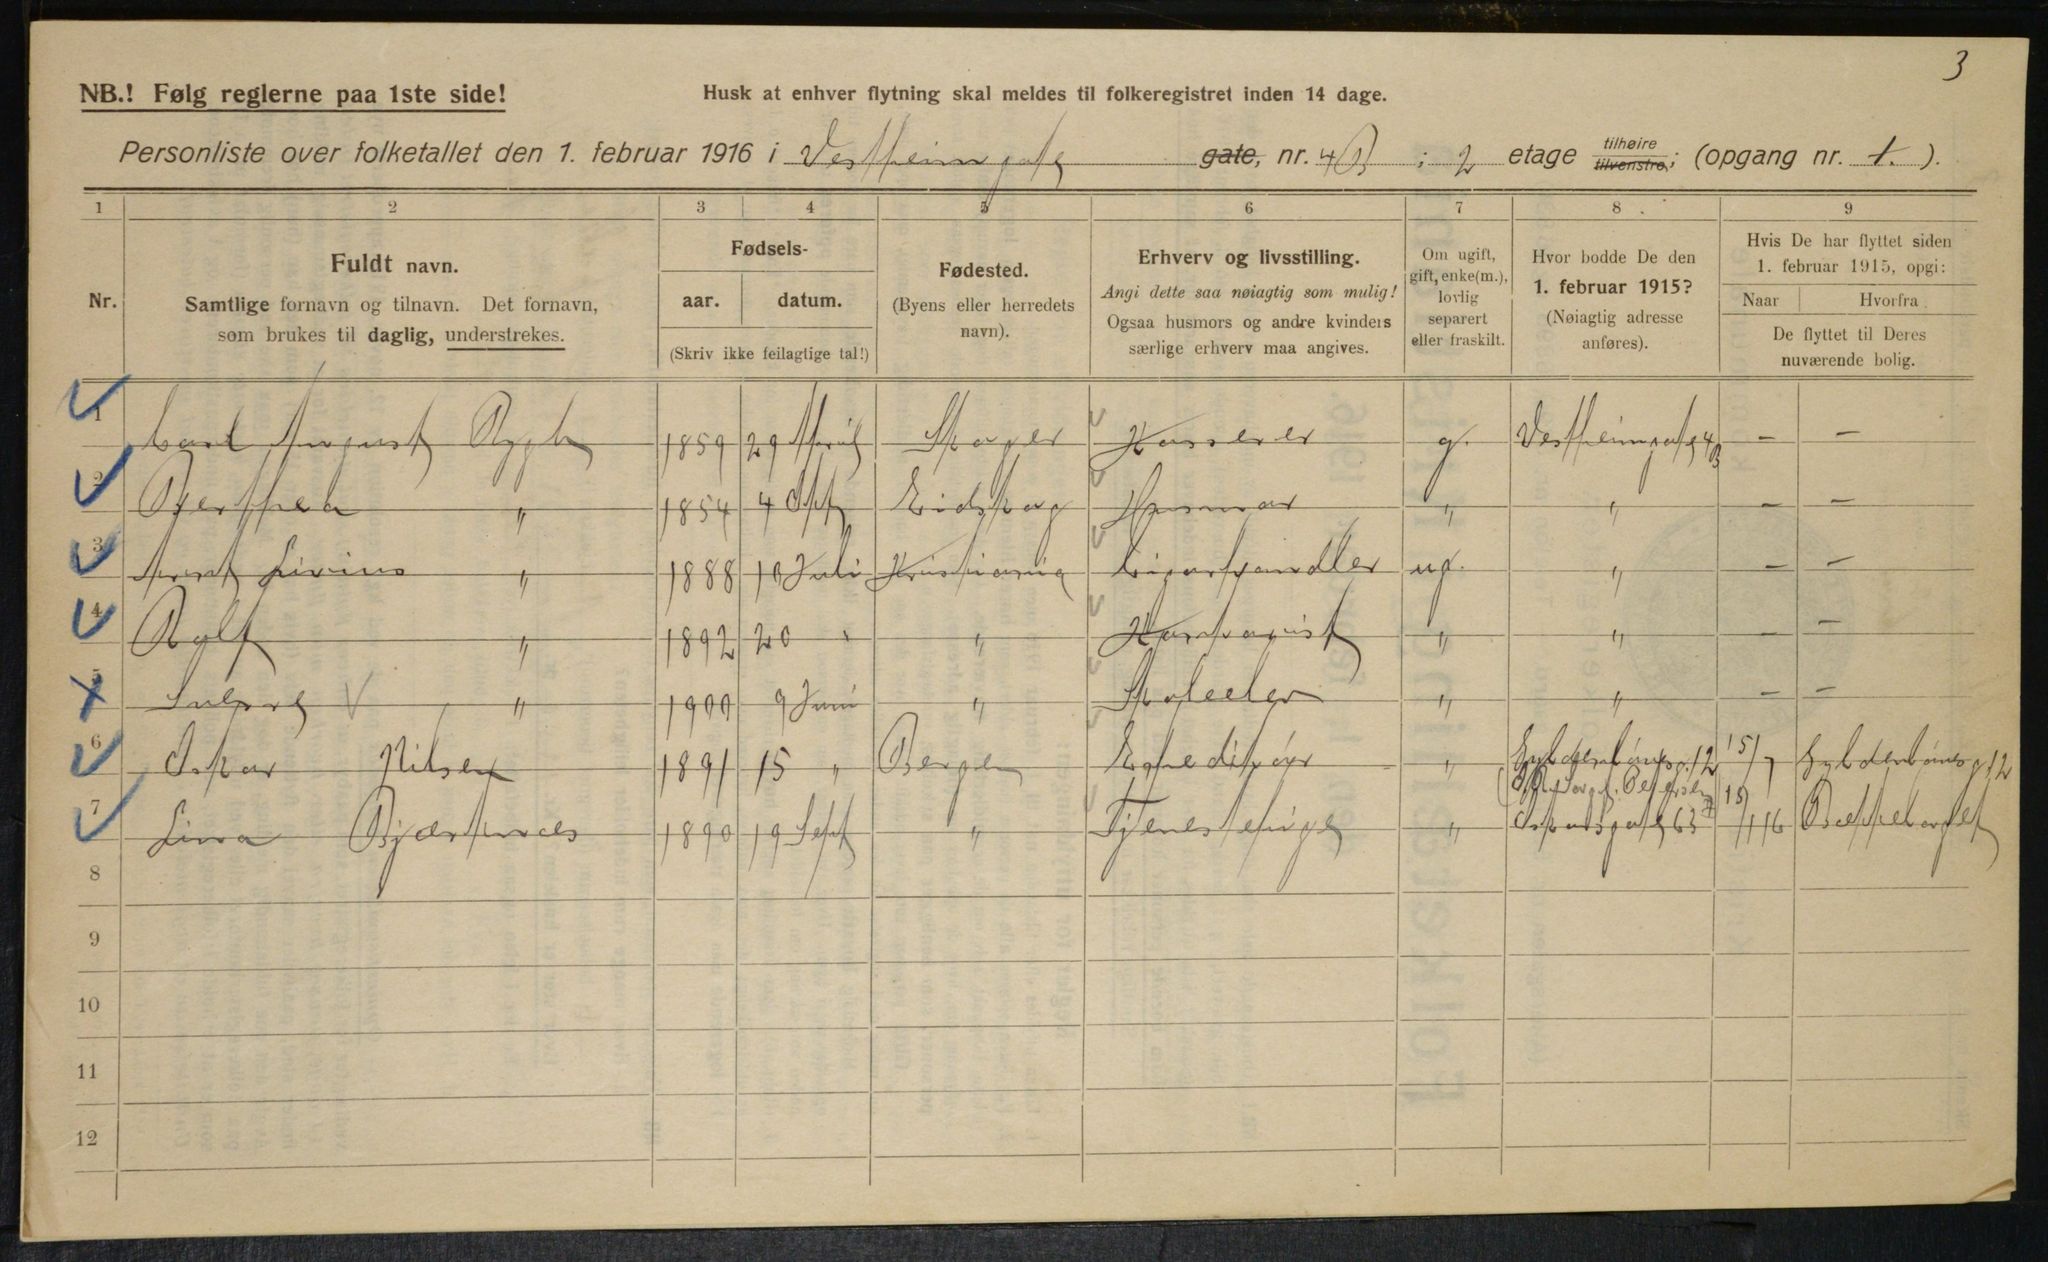 3
NB.! Følg reglerne paa 1ste side!
Husk at enhver flytning skal meldes til folkeregistret inden 14 dage.
Personliste over folketallet den 1. februar 1916 i Vestheimgate gate, nr. 4B ; 2 etage tilhøire tilvenstre; (opgang nr. 1. ).
1 2 3 4 5 6 7 8 9
Nr.
Fuldt navn.
Samtlige fornavn og tilnavn. Det fornavn,
som brukes til daglig, understrekes.
Fødsels-
aar. datum.
(Skriv ikke feilagtige tal!)
Fødested.
(Byens eller herredets
navn).
Erhverv og livsstilling.
Angi dette saa nøiagtig som mulig!
Ogsaa husmors og andre kvinders
særlige erhverv maa angives.
Om ugift,
gift, enke(m.),
lovlig
separert
eller fraskilt.
Hvor bodde De den
1. februar 1915?
(Nøiagtig adresse
anføres).
Hvis De har flyttet siden
1. februar 1915, opgi:
Naar Hvorfra
De flyttet til Deres
nuværende bolig.
1 Carl August Rygh 1859 29 April Skoger Kasserer g. Vestheimgate 4B – –
2 Berthea " 1854 4 Eidskog Husmor " " – –
3 Arent Livius " 1888 10 Juli Kristiania Cigarhandler ug. " – –
4 Rolf " 1892 20 " " " " – –
5 " 1900 9 Juni " Skoleelev " " – –
6 Oskar Nilsen 1891 15 " Bergen Expeditør " Gyldenløvesg. 12 15/7 Gyldenløvesg. 12
7 Lina 1890 19 Sept " Tjenestepige " Oskarsgate 63 15/1 16
8
9
10
11
12